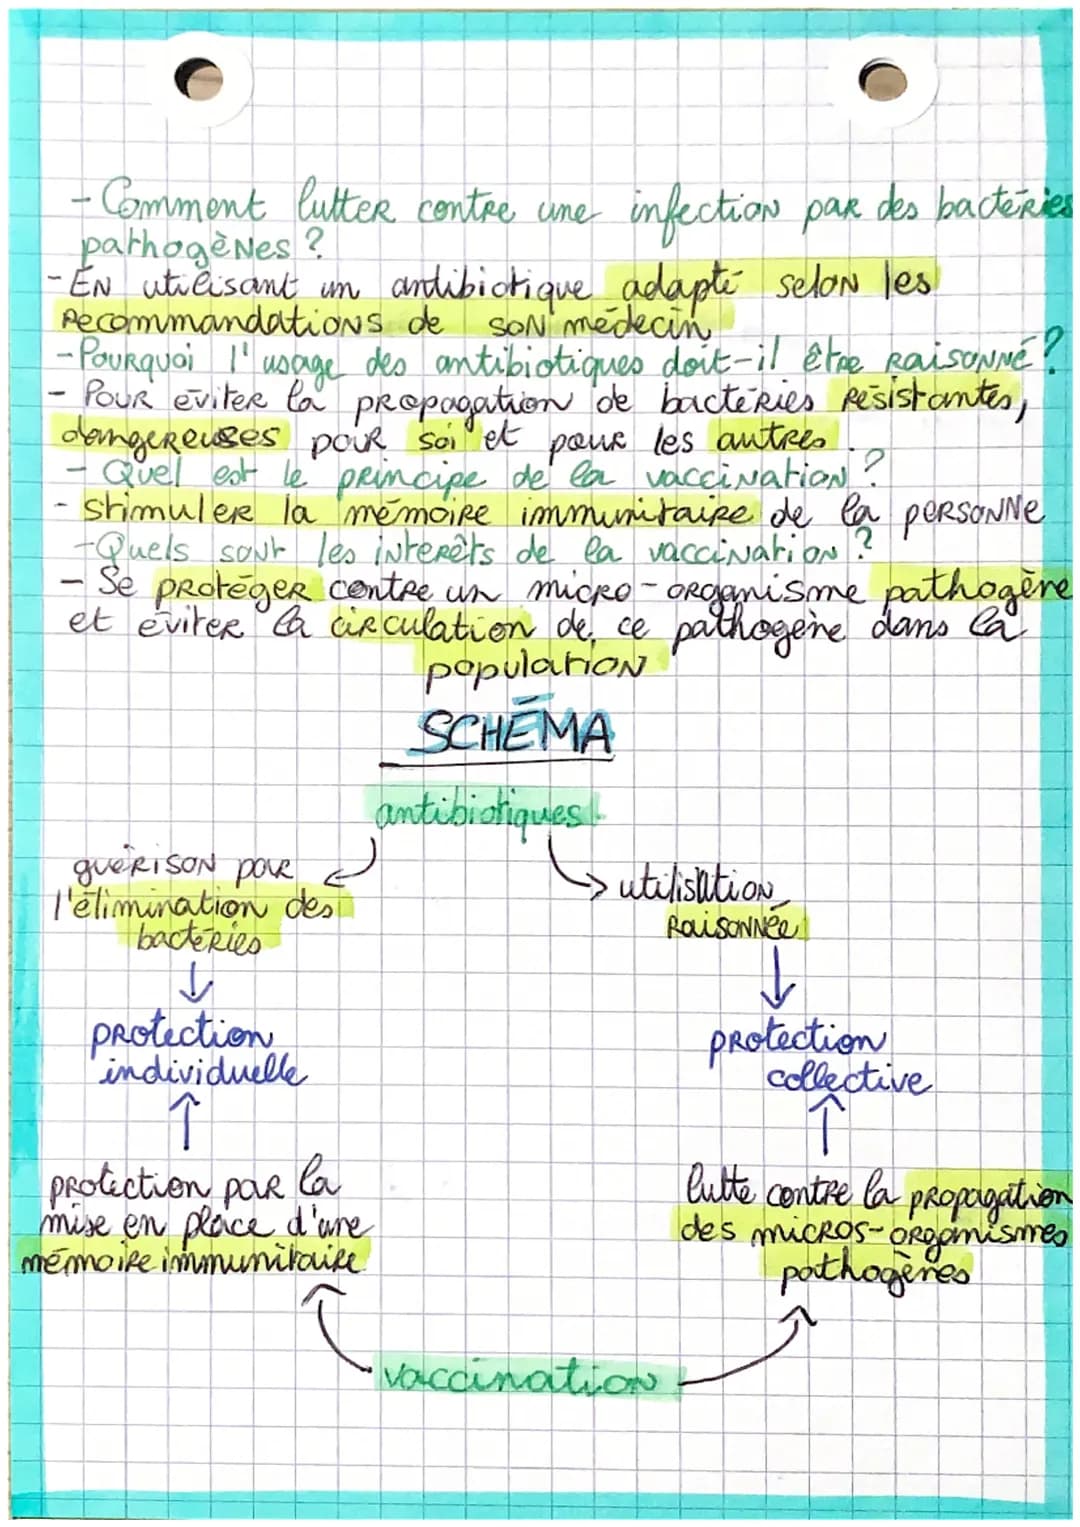 - Comment lutter contre une infection par des bactéries
pathogènes ?
- En utilisant un antibiotique adapté selon les
recommandations de son médecin
- Pourquoi l'usage des antibiotiques doit-il être raisonné ?
- Pour éviter la propagation de bactéries résistantes,
dangereuses pour soi et pour les autres.
- Quel est le principe de la vaccination ?
- Stimuler la mémoire immunitaire de la personne
- Quels sont les interêts de la vaccination ?
- Se protéger contre un micro-organisme pathogène
et éviter la circulation de ce pathogène dans la
population
SCHÉMA
antibiotiques
guérison par
l'élimination des
bactéries
utilisation
raisonnée
protection
individuelle
protection
collective
protection par la
mise en place d'une
mémoire immunitaire
lutte contre la propagation
des micros-organismes
pathogènes
vaccination